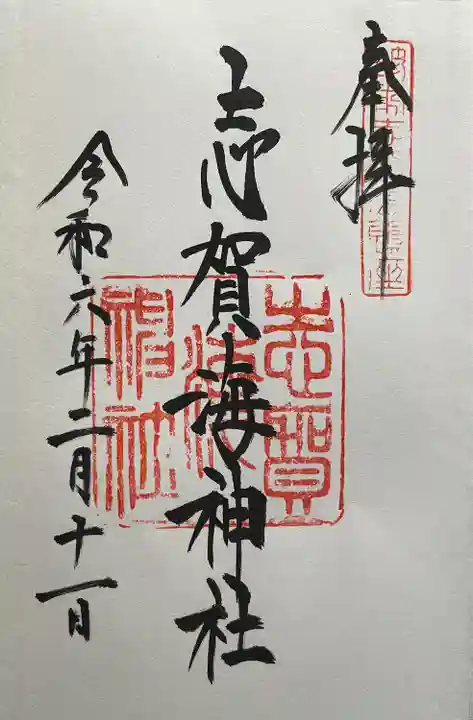 奉拝
志賀海神社
令和六年二月十一日
志賀
海
神社